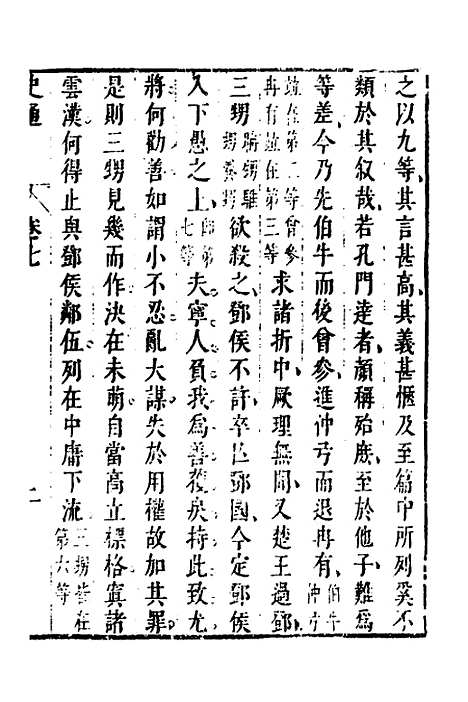 之以九等其言甚高其義甚愜及至篇中所列奚不
類於其叙哉若孔門達者顔稱殆庶至於他子難爲
等差今乃先伯牛而後曾參進仲弓而退冉有伯牛仲弓
並在第二等曾參冉有並在第三等求諸折中厥理無聞又楚王過鄧
三甥聃甥騅甥養甥欲殺之鄧侯不許卒亡鄧國今定鄧侯
入下愚之上即第七等夫寧人負我爲善獲戾持此致尤
將何勸善如謂小不忍亂大謀失於用權故加其罪
是則三甥見幾而作決在未萌自當高立標格寘諸
雲漢何得止與鄧侯鄰伍列在中庸下流三甥皆在第六等
史通 卷七 二